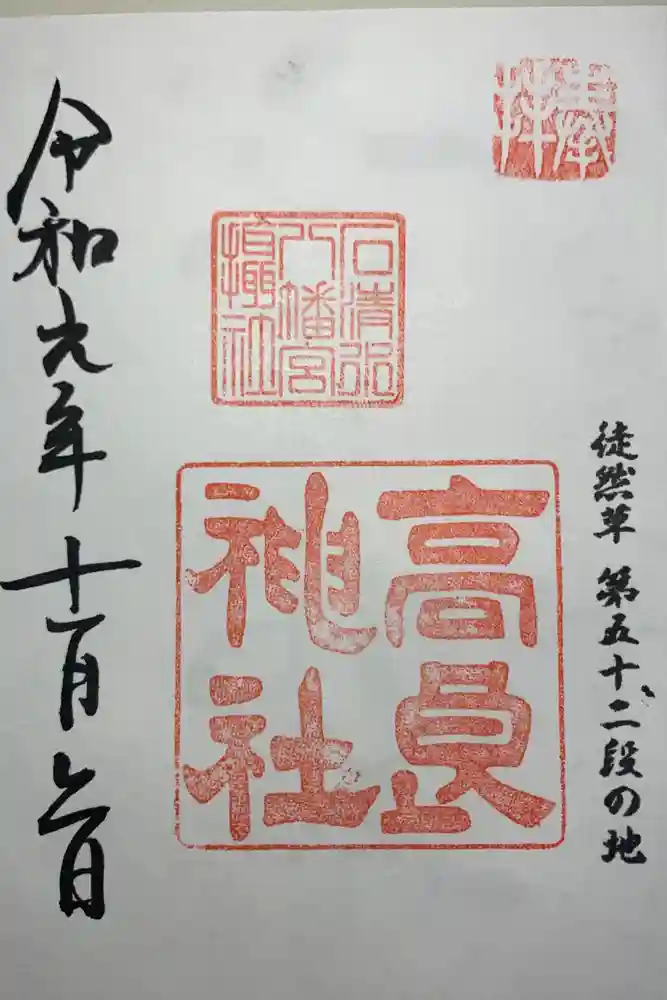 奉拝
徒然草 第五十二段の地
石清水
八幡宮
攝社
高良
神社
令和元年十一月 日